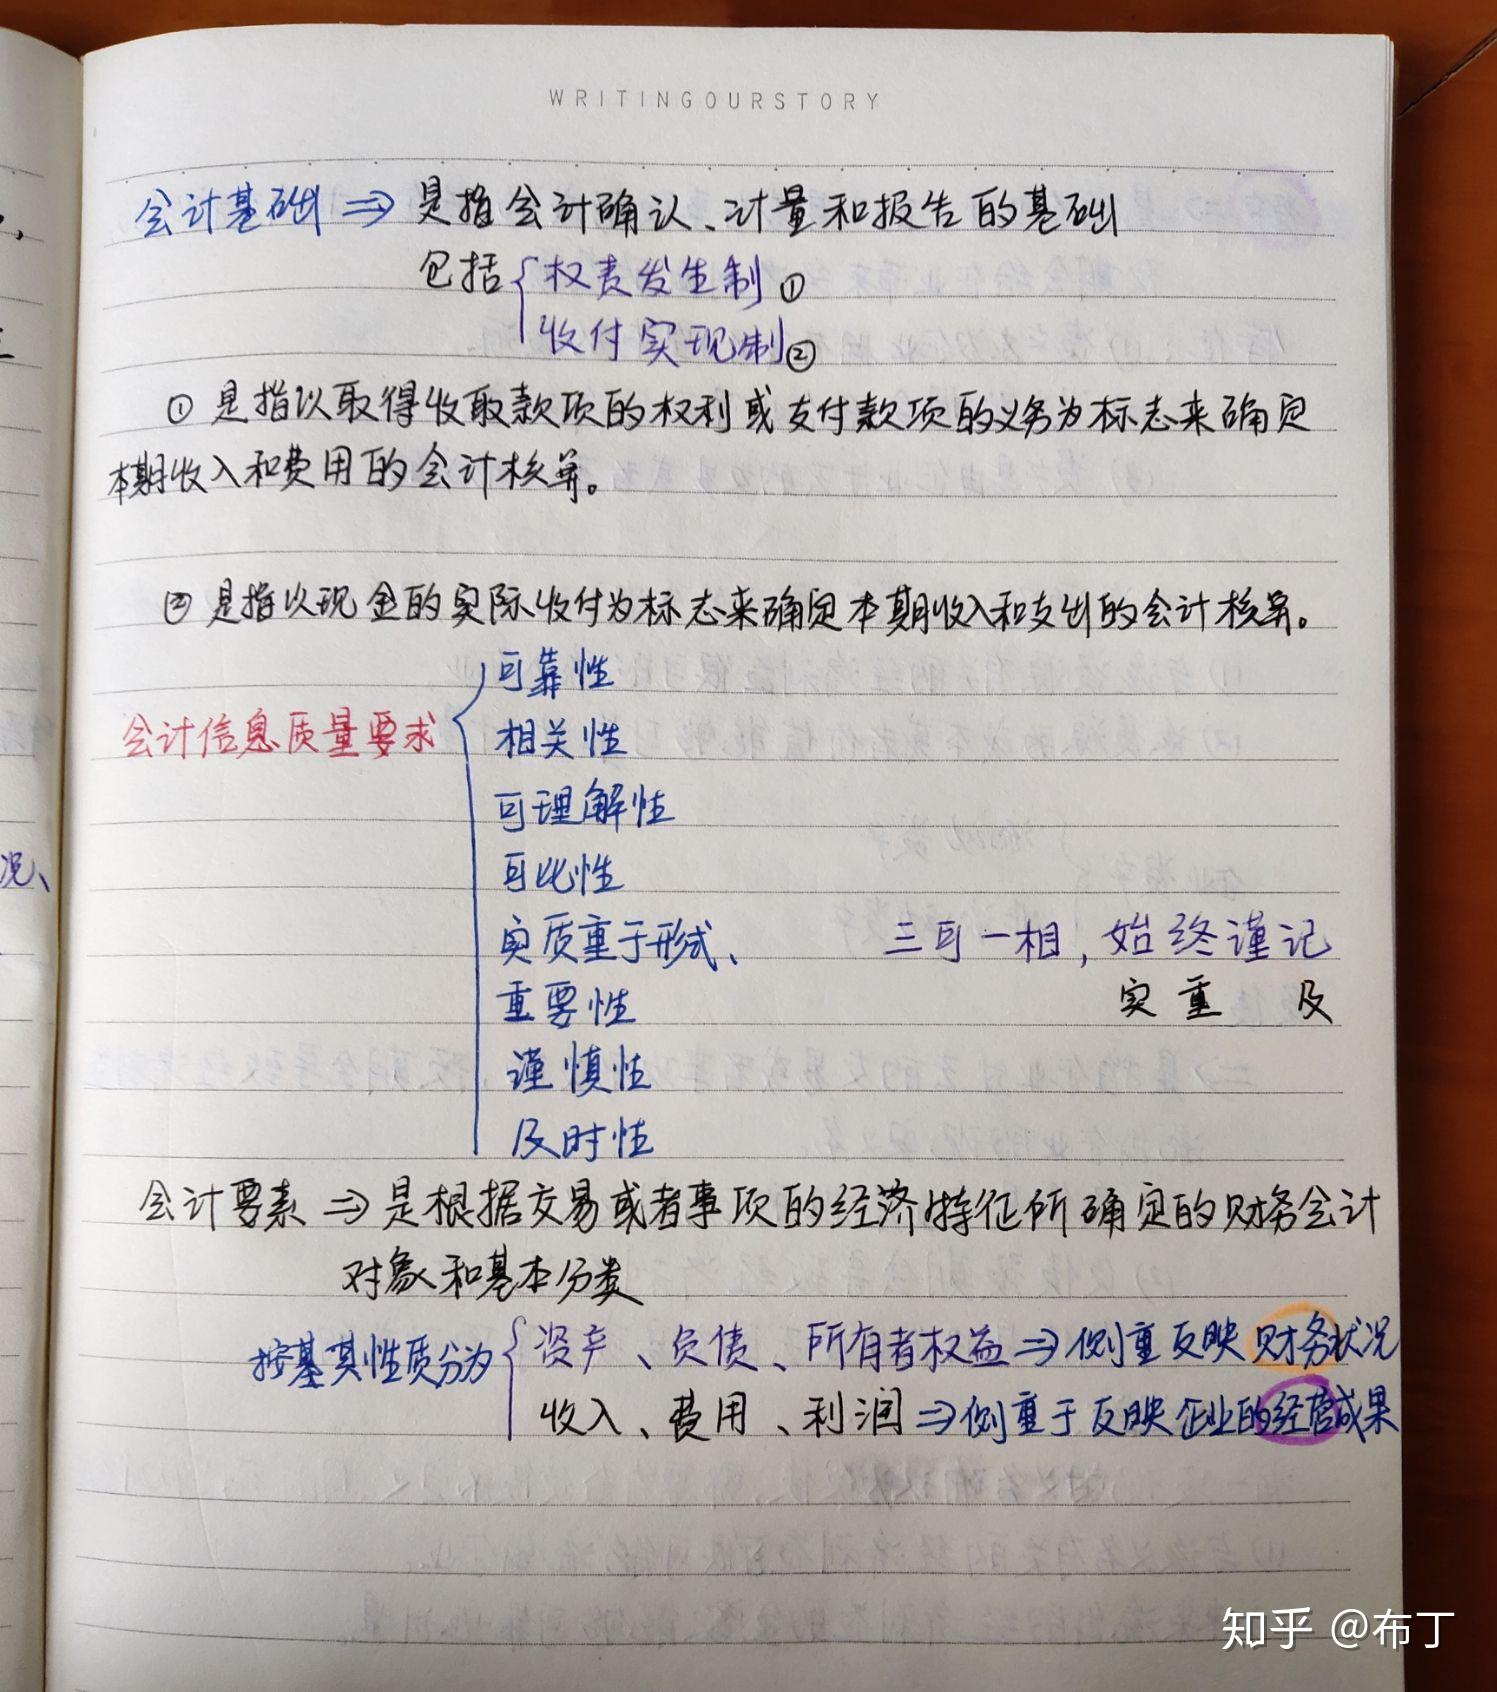 WRITINGOURSTORY
会计基础 ⇒ 是指会计确认、计量和报告的基础
包括 { 权责发生制①
收付实现制②
① 是指以取得收取款项的权利或支付款项的义务为标志来确定
本期收入和费用的会计核算。
② 是指以现金的实际收付为标志来确定本期收入和支出的会计核算。
会计信息质量要求
可靠性
相关性
可理解性
可比性
实质重于形式、
重要性
谨慎性
及时性
三可一相，始终谨记
实重 及
会计要素 ⇒ 是根据交易或者事项的经济特征所确定的财务会计
对象和基本分类
按基其性质分为 { 资产、负债、所有者权益 ⇒ 侧重反映财务状况
收入、费用、利润 ⇒ 侧重于反映企业的经营成果
况、
知乎 @布丁